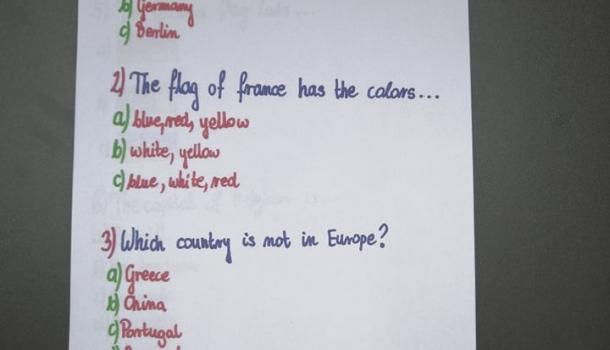 b) Germany
c) Berlin
2) The flag of france has the colors...
a) blue, red, yellow
b) white, yellow
c) blue, white, red
3) Which country is not in Europe?
a) Greece
b) China
c) Portugal